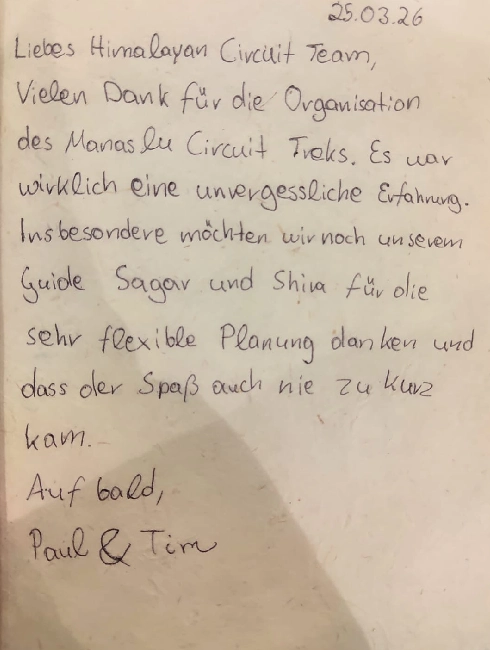 25.03.26
Liebes Himalayan Circuit Team,
Vielen Dank für die Organisation
des Manaslu Circuit Treks. Es war
wirklich eine unvergessliche Erfahrung.
Insbesondere möchten wir noch unserem
Guide Sagar und Shiva für die
sehr flexible Planung danken und
dass der Spaß auch nie zu kurz
kam.
Auf bald,
Paul & Tim